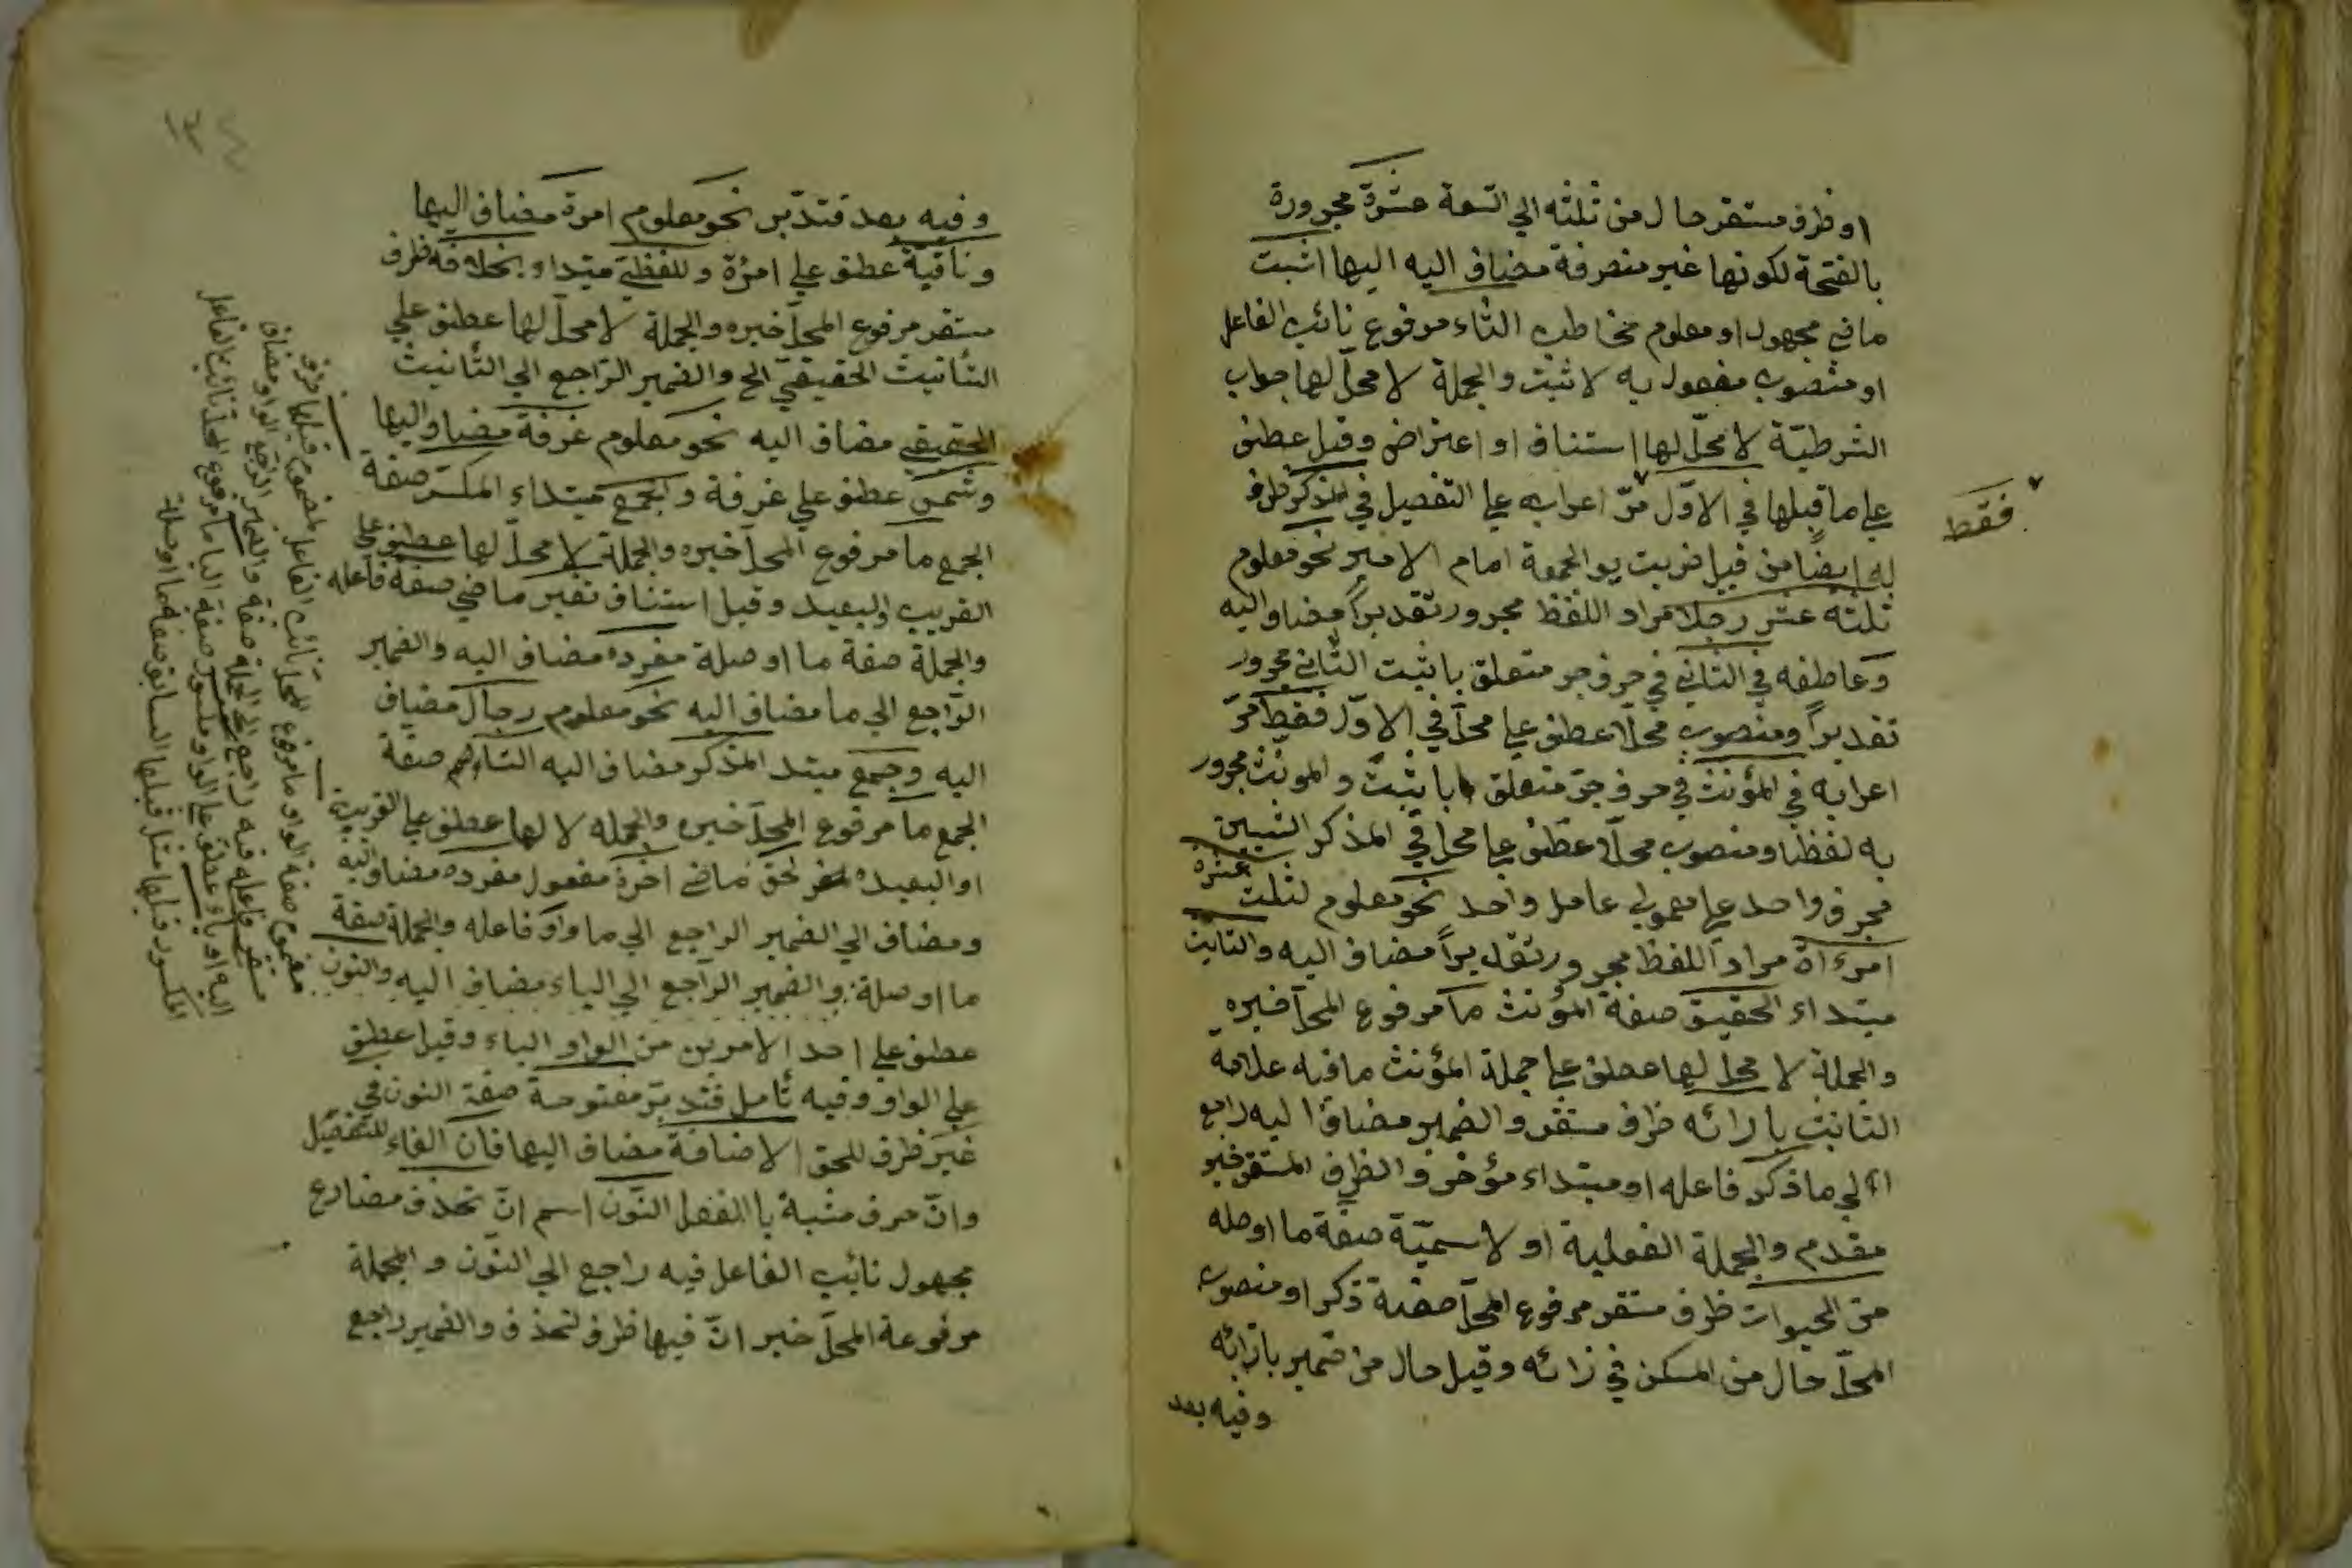 او ظرف مستقر حال من ثلثه الي التسعة عشرة مجرورة
بالفتحة لكونها غير منصرفة مضاف اليه اليها اثبت
ماضي مجهول او معلوم مخاطب التاء مرفوع نائب الفاعل
او منصوب مفعول به لاثبت والجملة لا محلّ لها جواب
الشرطيّة لا محلّ لها استناف او اعتراض وقيل عطف
علي ما قبلها في الاوّل مرّ اعرابه علي التفصيل في المذكر ظرف
فقط
له ايضًا من قبيل ضربت يوم الجمعة امام الامير نحو معلوم
ثلثه عشر رجلا مراد اللفظ مجرور تقديراً مضاف اليه
وعاطفه في الثاني في حرف جر متعلق باثبت الثاني مجرور
تقديراً ومنصوب محلّا عطف علي محلّ في الاوّل فقط مرّ
اعرابه في المؤنث في حرف جرّ متعلق باثبت والمونث مجرور
به لفظا ومنصوب محلّا عطف علي محل في المذكر الشيئين
بحرف واحد علي معمولي عامل واحد نحو معلوم لثلث عشرة
امرءاة مراد اللفظ مجرور تقديراً مضاف اليه والتانيث
مبتداء الحقيقي صفة المؤنث ما مرفوع المحلّ خبره
والجملة لا محلّ لها عطف علي جملة المؤنث ما فيه علامة
التانيث بازائه ظرف مستقر والضمير مضاف اليه راجع
الي ما ذكر فاعله او مبتداء مؤخر والظرف المستقر خبر
مقدم والجملة الفعلية او لاسميّة صفة ما او صله
من الحيوان ظرف مستقر مرفوع المحلّ صفة ذكر او منصوب
المحلّ حال من المسكن في زائه وقيل حال من ضمير بازائه
وفيه بعد
١٣٤
وفيه بعد فتدبّر نحو معلوم امرة مضاف اليها
وناقية عطف علي امرة واللفظي مبتداء بخلافه ظرف
مستقر مرفوع المحلّ خبره والجملة لا محلّ لها عطف علي
التأنيث الحقيقي الخ والضمير الرّاجع الي التّانيث
الحقيقي مضاف اليه نحو معلوم غرفة مضاف اليها
وشمس عطف علي غرفة والجمع مبتداء المكسّر صفة
الجمع ما مرفوع المحلّ خبره والجملة لا محلّ لها عطف علي
القريب والبعيد وقيل استناف تغير ماضي صفة فاعله
والجملة صفة ما او صلة مفرده مضاف اليه والضمير
الرّاجع الي ما مضاف اليه نحو معلوم رجال مضاف
اليه وجمع مبتدا المذكر مضاف اليه السّالم صفة
الجمع ما مرفوع المحلّ خبره والجمله لا لها عطف علي القريبة
او البعيده لحق ماضي اخره مفعول مفرده مضاف اليه
ومضاف الي الضمير الراجع الي ما واو فاعله والجملة صفة
ما او صلة والضمير الرّاجع الي الياء مضاف اليه والنون
عطف علي احد الامرين من الواو الياء وقيل عطف
علي الواو وفيه تأمل فتدبّر مفتوحة صفة النون في
غير ظرف للحق الاضافة مضاف اليها فان الفاء للتفصيل
وانّ حرف مشبة باالفعل النّون اسم انّ تحذف مضارع
مجهول نائب الفاعل فيه راجع الي النّون والجملة
مرفوعة المحلّ خبر انّ فيها ظرف لتحذف والضمير راجع
مضموم صفة الواو ما مرفوع المحل نائب الفاعل لمضموم قبلها ظرف
مستقر فاعله فيه راجع الي الجملة صفة والضمير الراجع الواو مضاف
اليه او ياء عطف علي الواو مكسور صفة اليا ما مرفوع المحل نائب الفاعل
المكسور قبلها مثل قبلها السابق صفة ما او صلة